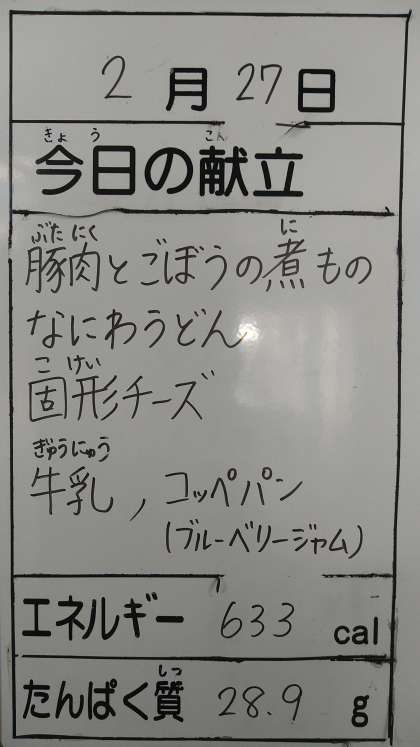 2月27日
きょう こん
今日の献立
ぶたにく に
豚肉とごぼうの煮もの
なにわうどん
こけい
固形チーズ
ぎゅうにゅう
牛乳, コッペパン
(ブルーベリージャム)
エネルギー 633 cal
しつ
たんぱく質 28.9 g